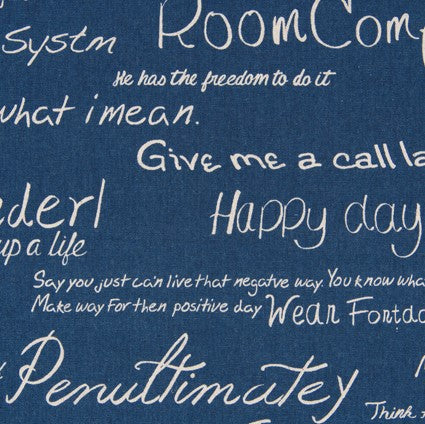 Systm
Room Com
He has the freedom to do it
what i mean.
Give me a call la
Happy day
up a life
Say you just can live that negatve way. You know wha
Make way For then positive day
Wear
Penultimatey
Think